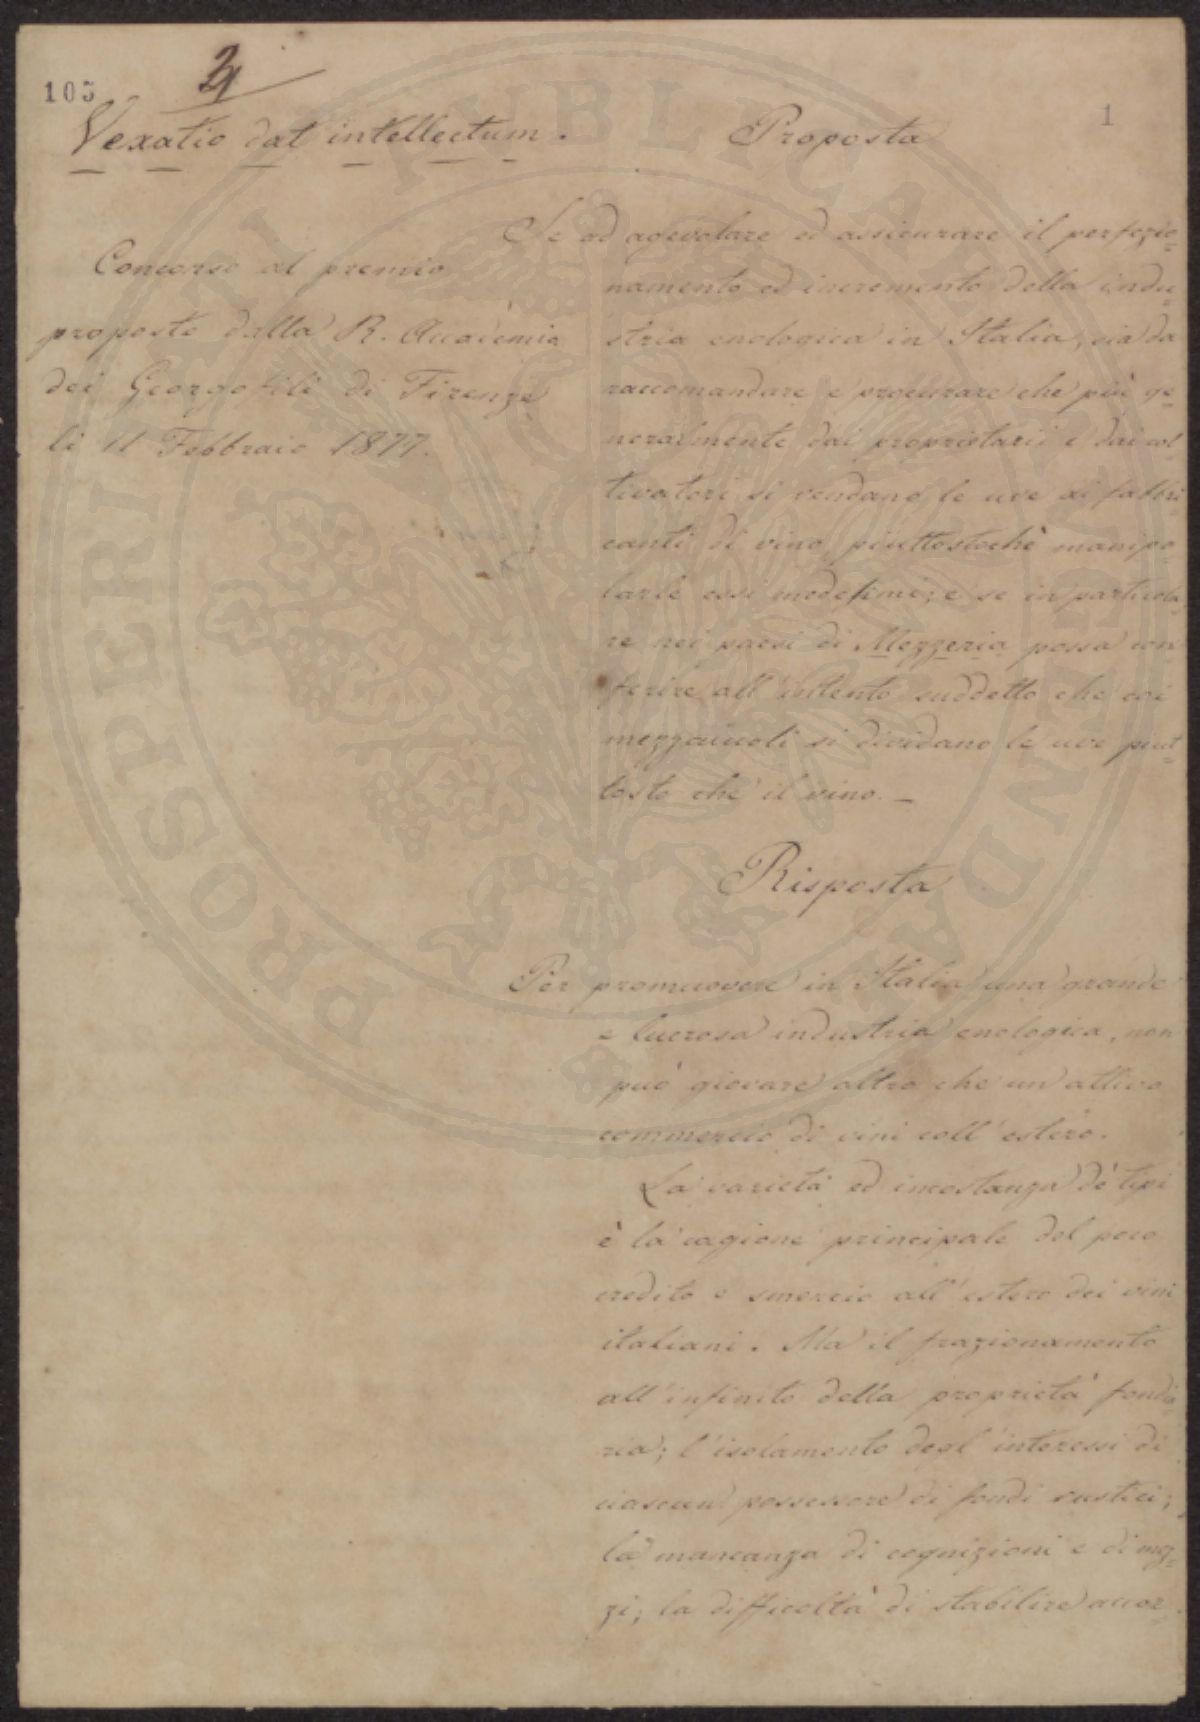 105
21
1
Vexatio dat intellectum.
Concorso al premio
proposto dalla R. Accademia
dei Georgofili di Firenze
li 11 Febbraio 1877.
Proposta
Se ad agevolare ed assicurare il perfezio=
namento ed incremento della indu=
stria enologica in Italia, sia da
raccomandare e procurare che più ge=
neralmente dai proprietarii e dai col=
tivatori si vendano le uve ai fabbri=
canti di vino, piuttostochè manipo=
larle essi medesimi; e se in particola=
re nei paesi di Mezzeria possa con=
ferire all'intento suddetto che coi
mezzaiuoli si dividano le uve piut=
tosto che il vino. —
Risposta
Per promuovere in Italia una grande
e lucrosa industria enologica, non
può giovare altro che un attivo
commercio di vini coll'estero.
La varietà ed incostanza de' tipi
è la cagione principale del poco
credito e smercio all'estero dei vini
italiani. Ma il frazionamento
all'infinito della proprietà fondia=
ria; l'isolamento degl'interessi di
ciascun possessore di fondi rustici;
la mancanza di cognizioni e di mez=
zi; la difficoltà di stabilire accor=
PROSPERITATI PUBLICAE AUGENDAE